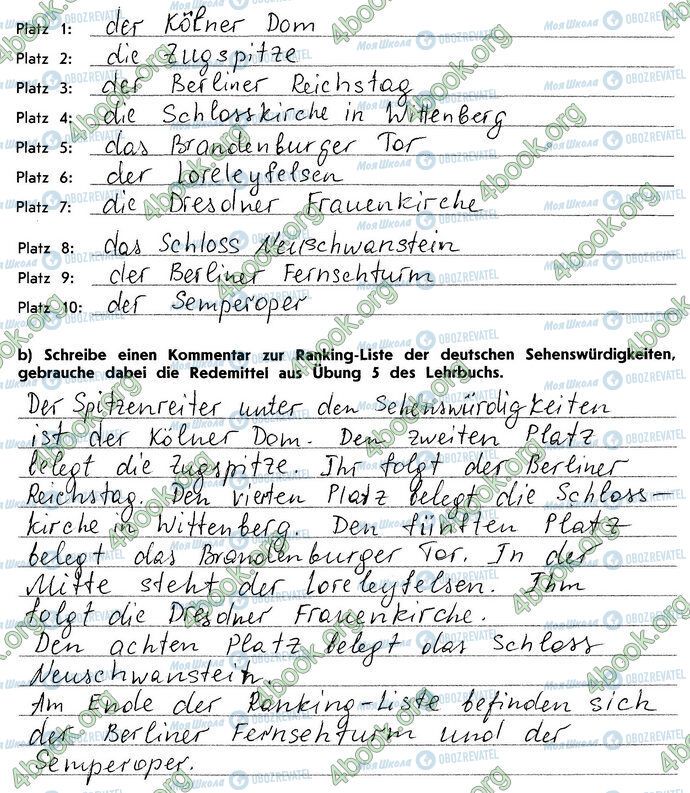 Platz 1: der Kölner Dom
Platz 2: die Zugspitze
Platz 3: der Berliner Reichstag
Platz 4: die Schlosskirche in Wittenberg
Platz 5: das Brandenburger Tor
Platz 6: der Loreleyfelsen
Platz 7: die Dresdner Frauenkirche
Platz 8: das Schloss Neuschwanstein
Platz 9: der Berliner Fernsehturm
Platz 10: der Semperoper
b) Schreibe einen Kommentar zur Ranking-Liste der deutschen Sehenswürdigkeiten,
gebrauche dabei die Redemittel aus Übung 5 des Lehrbuchs.
Der Spitzenreiter unter den Sehenswürdigkeiten
ist der Kölner Dom. Den zweiten Platz
belegt die Zugspitze. Ihr folgt der Berliner
Reichstag. Den vierten Platz belegt die Schloss-
kirche in Wittenberg. Den fünften Platz
belegt das Brandenburger Tor. In der
Mitte steht der Loreleyfelsen. Ihm
folgt die Dresdner Frauenkirche.
Den achten Platz belegt das Schloss
Neuschwanstein.
Am Ende der Ranking-Liste befinden sich
der Berliner Fernsehturm und der
Semperoper.
4book.org
Моя Школа OBOZREVATEL